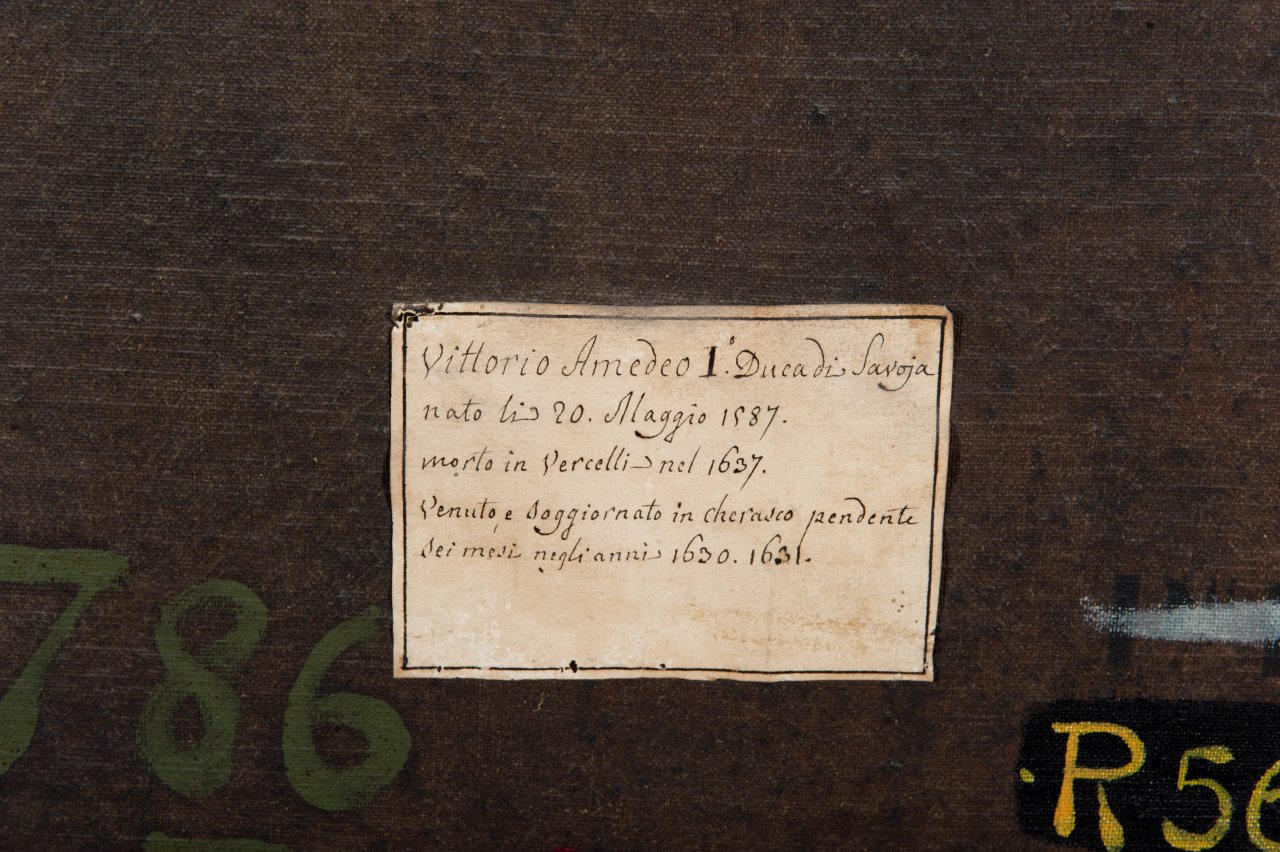 Vittorio Amedeo 1º. Duca di Savoja
nato li 20. Maggio 1587.
morto in Vercelli nel 1637.
Venuto, e Soggiornato in cherasco pendente
Sei mesi negli anni 1630. 1631.
786
R 56